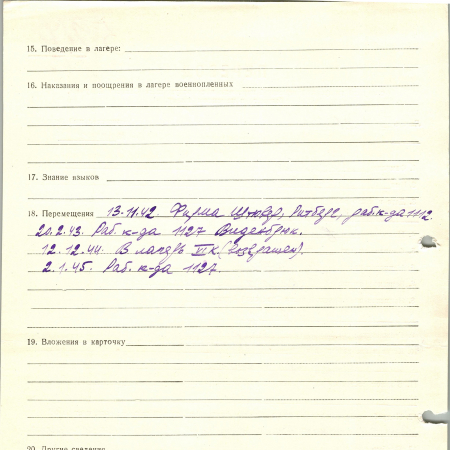 15. Поведение в лагере:
16. Наказания и поощрения в лагере военнопленных
17. Знание языков
18. Перемещения 13.11.42. Фирма Штювер, Ритберг, раб.к-да 1112.
20.2.43. Раб. к-да 1127 Виденбрюк.
12.12.44. В лагерь VI К. (Возвращен).
2.1.45. Раб. к-да 1127.
19. Вложения в карточку
20. Другие сведения